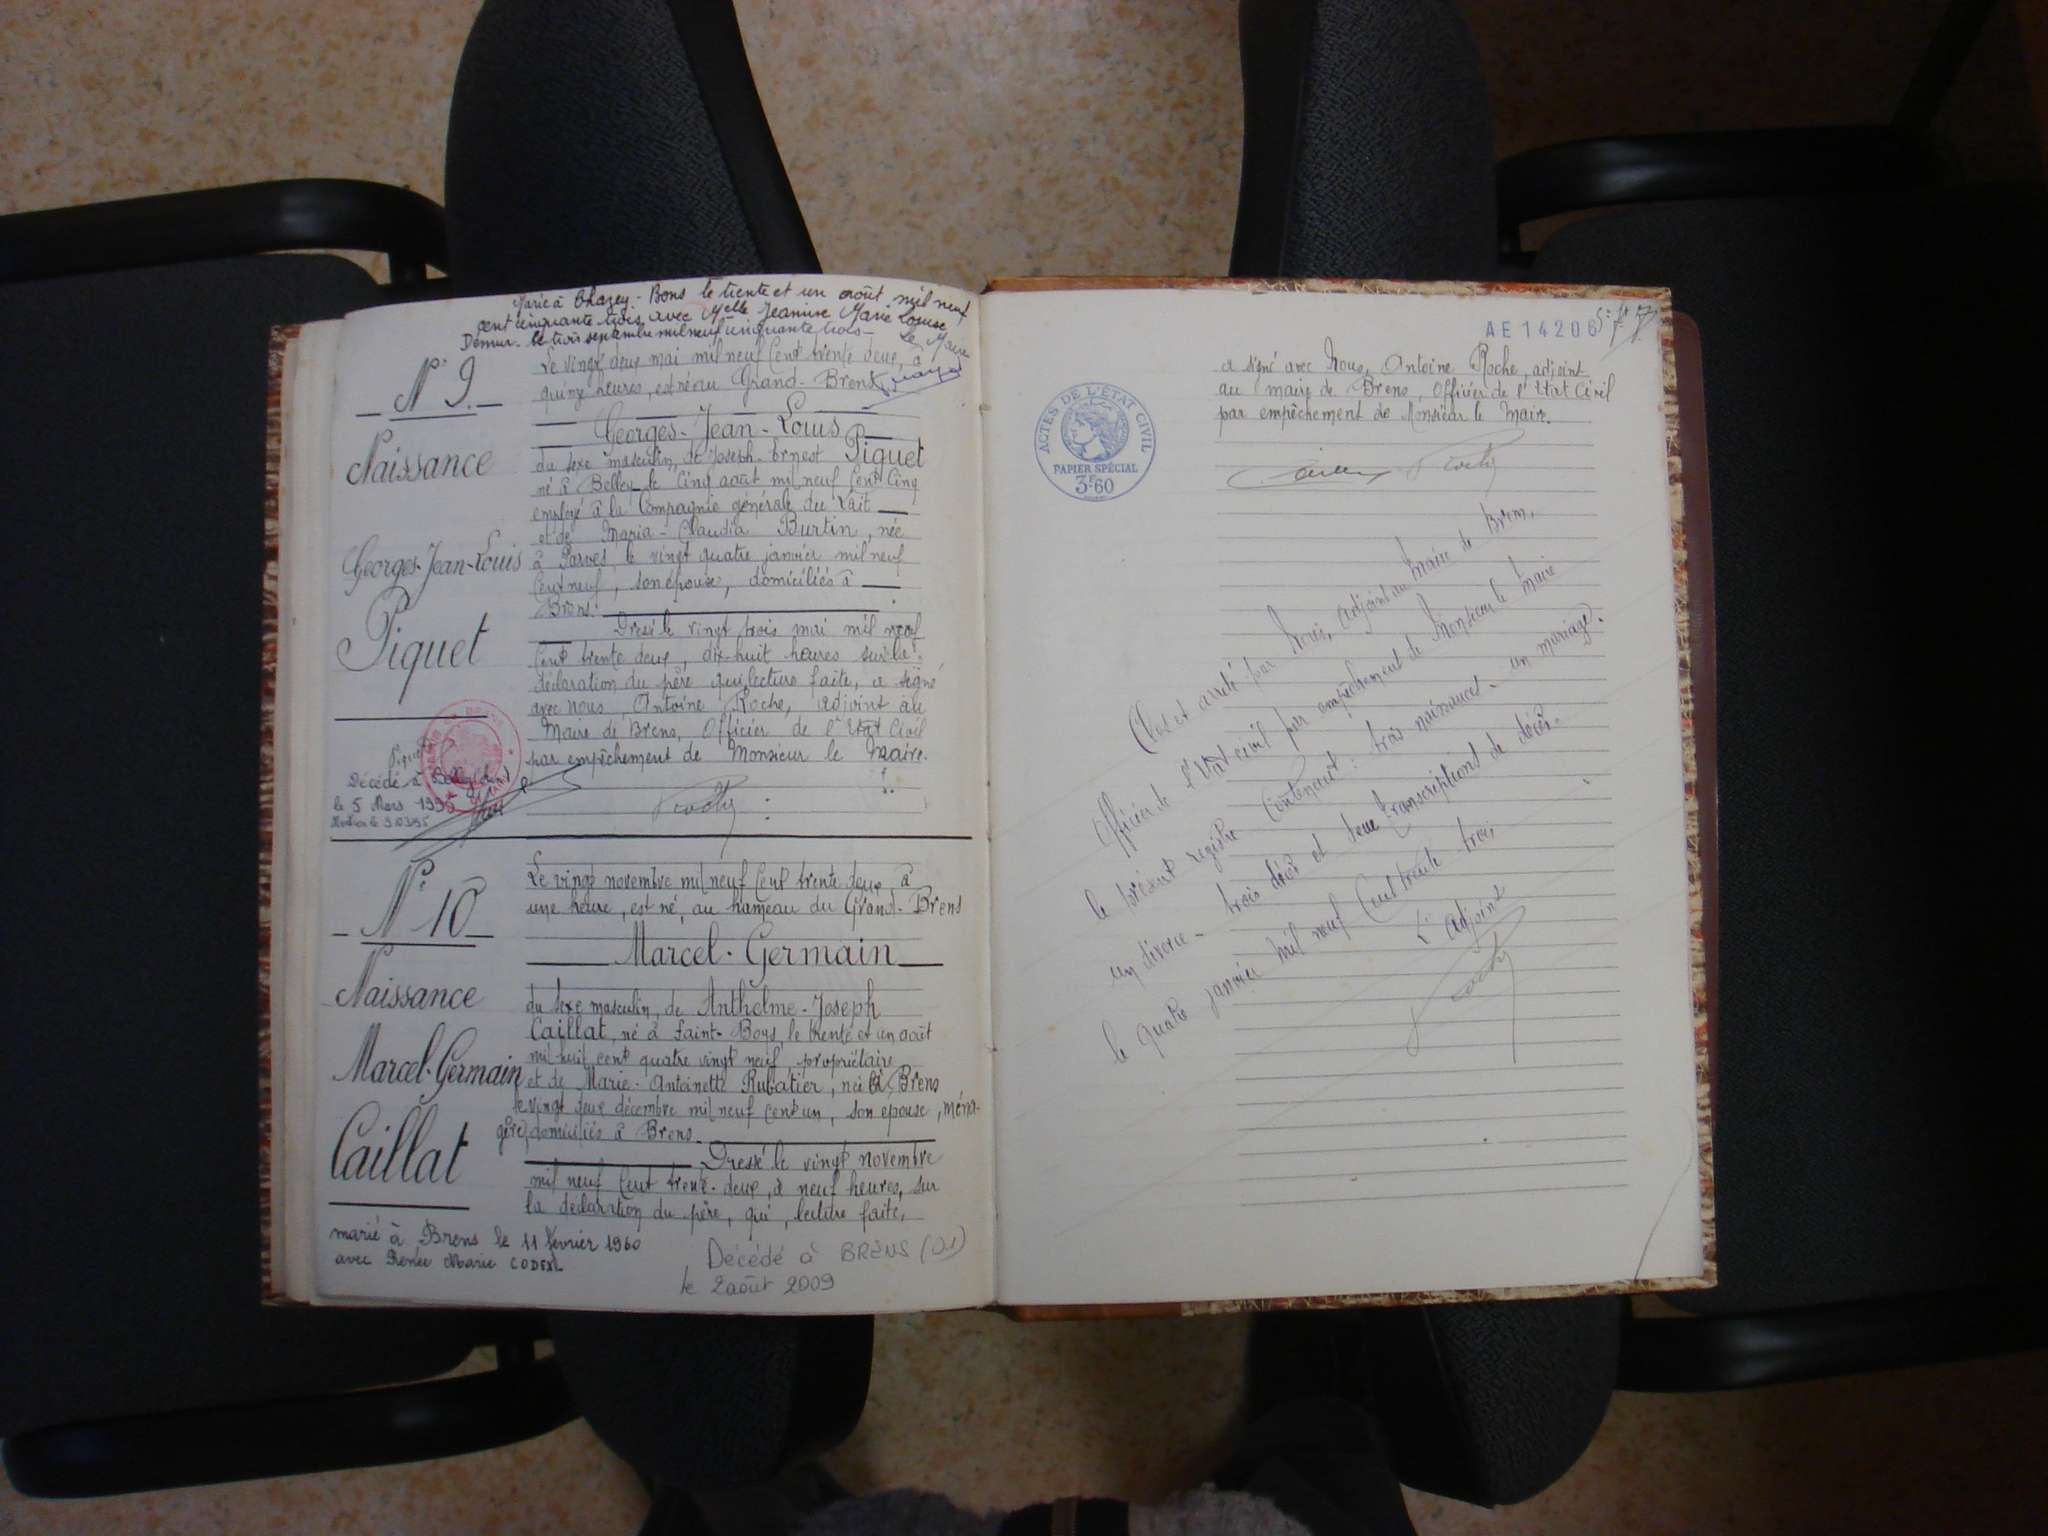 Marié à Chazey-Bons le trente et un août mil neuf
cent cinquante trois avec Melle Jeanine Marie Louise
Demur. le trois septembre mil neuf cinquante trois - Le Maire
N° 9
Le vingt deux mai mil neuf Cent trente deux, à
quinze heures, est né au Grand-Brens
Georges-Jean-Louis
Naissance
du sexe masculin, de Joseph-Ernest Piquet
né à Belley le Cinq août mil neuf Cent Cinq
employé à la Compagnie générale du Lait
et de Maria-Claudia Burtin, née
Georges-Jean-Louis
à Parves, le vingt quatre janvier mil neuf
Cent neuf, son épouse, domiciliés à
Brens.
Piquet
Dressé le vingt trois mai mil neuf
Cent trente deux, dix-huit heures sur la
déclaration du père qui, lecture faite, a signé
avec nous, Antoine Roche, adjoint au
Maire de Brens, Officier de l'Etat Civil
par empêchement de Monsieur le Maire.
Piquet
Roche
Décédé à Belley (Ain)
le 5 Mars 1995
N° 10
Le vingt novembre mil neuf Cent trente deux à
une heure, est né, au hameau du Grand-Brens
Marcel-Germain
Naissance
du sexe masculin, de Anthelme-Joseph
Caillat, né à Saint-Boys, le trente et un août
mil huit cent quatre vingt neuf, propriétaire
Marcel-Germain
et de Marie-Antoinette Rubatier, née à Brens
le vingt deux décembre mil neuf cent un, son epouse, ména-
gère, domiciliés à Brens.
Caillat
Dressé le vingt novembre
mil neuf Cent trente-deux, à neuf heures, sur
la déclaration du père, qui, lecture faite,
marié à Brens le 11 février 1960
avec Renée Marie CODEX
Décédé à BRENS (01)
le 2 août 2009
AE 14206
a signé avec Nous, Antoine Roche, adjoint
au maire de Brens, Officier de l'Etat Civil
par empêchement de Monsieur le Maire.
ACTES DE L'ÉTAT CIVIL
PAPIER SPÉCIAL
3F60
Roche
Clos et arrêté par Nous, adjoint au Maire de Brens,
Officier de l'Etat civil par empêchement de Monsieur le Maire
le présent registre Contenant : trois naissances - un mariage.
un divorce - trois décès et deux transcriptions de décès.
le quatre janvier mil neuf Cent trente trois
L'adjoint
Roche